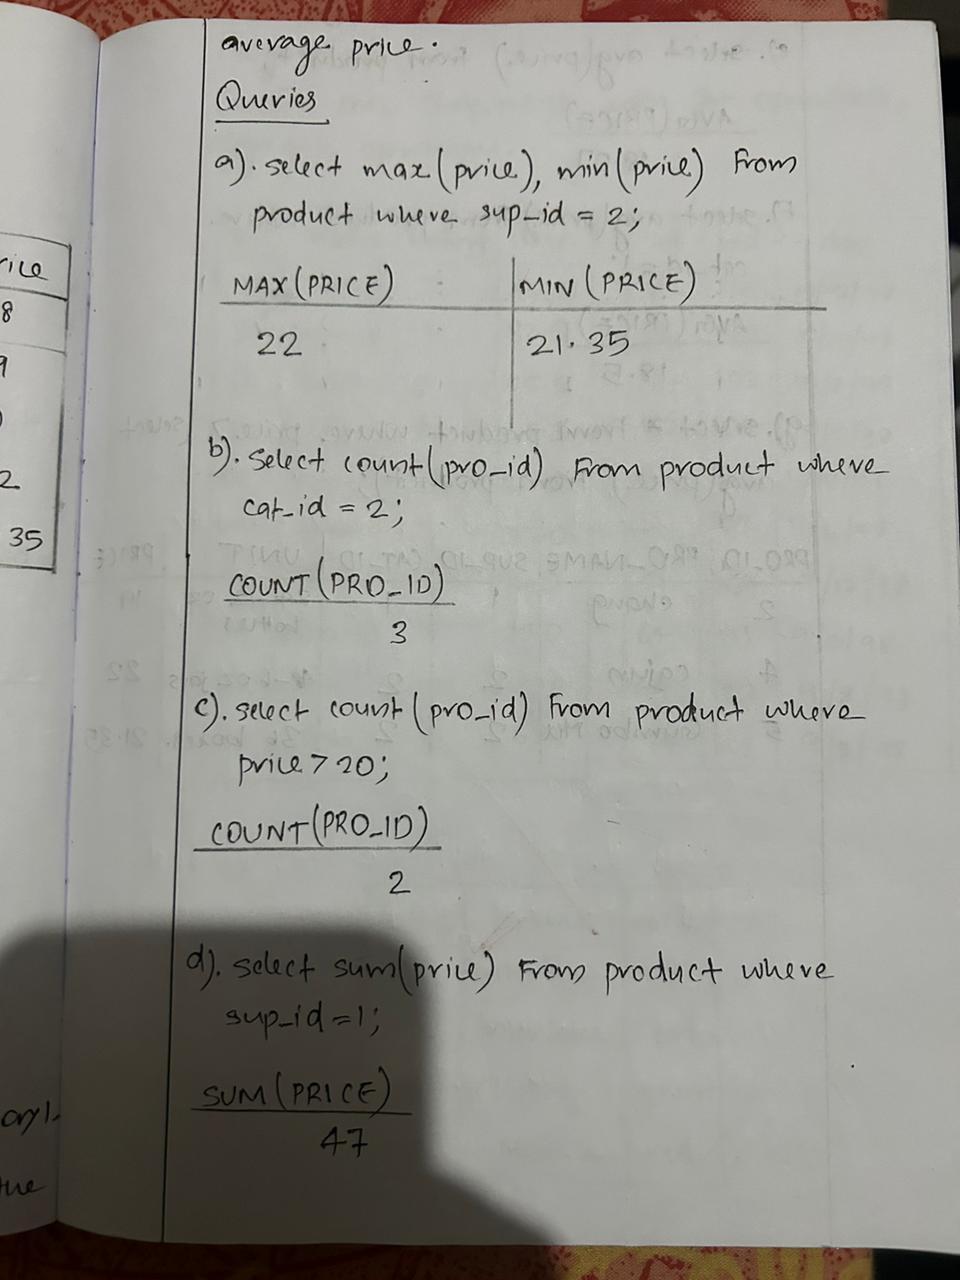 average price.
Queries
a). select max(price), min(price) From
product where sup_id = 2;
MAX(PRICE) MIN(PRICE)
22 21.35
b). select count(pro_id) From product where
cat_id = 2;
COUNT(PRO_ID)
3
c). select count(pro_id) From product where
price > 20;
COUNT(PRO_ID)
2
d). select sum(price) From product where
sup_id = 1;
SUM(PRICE)
47
8
9
2
35